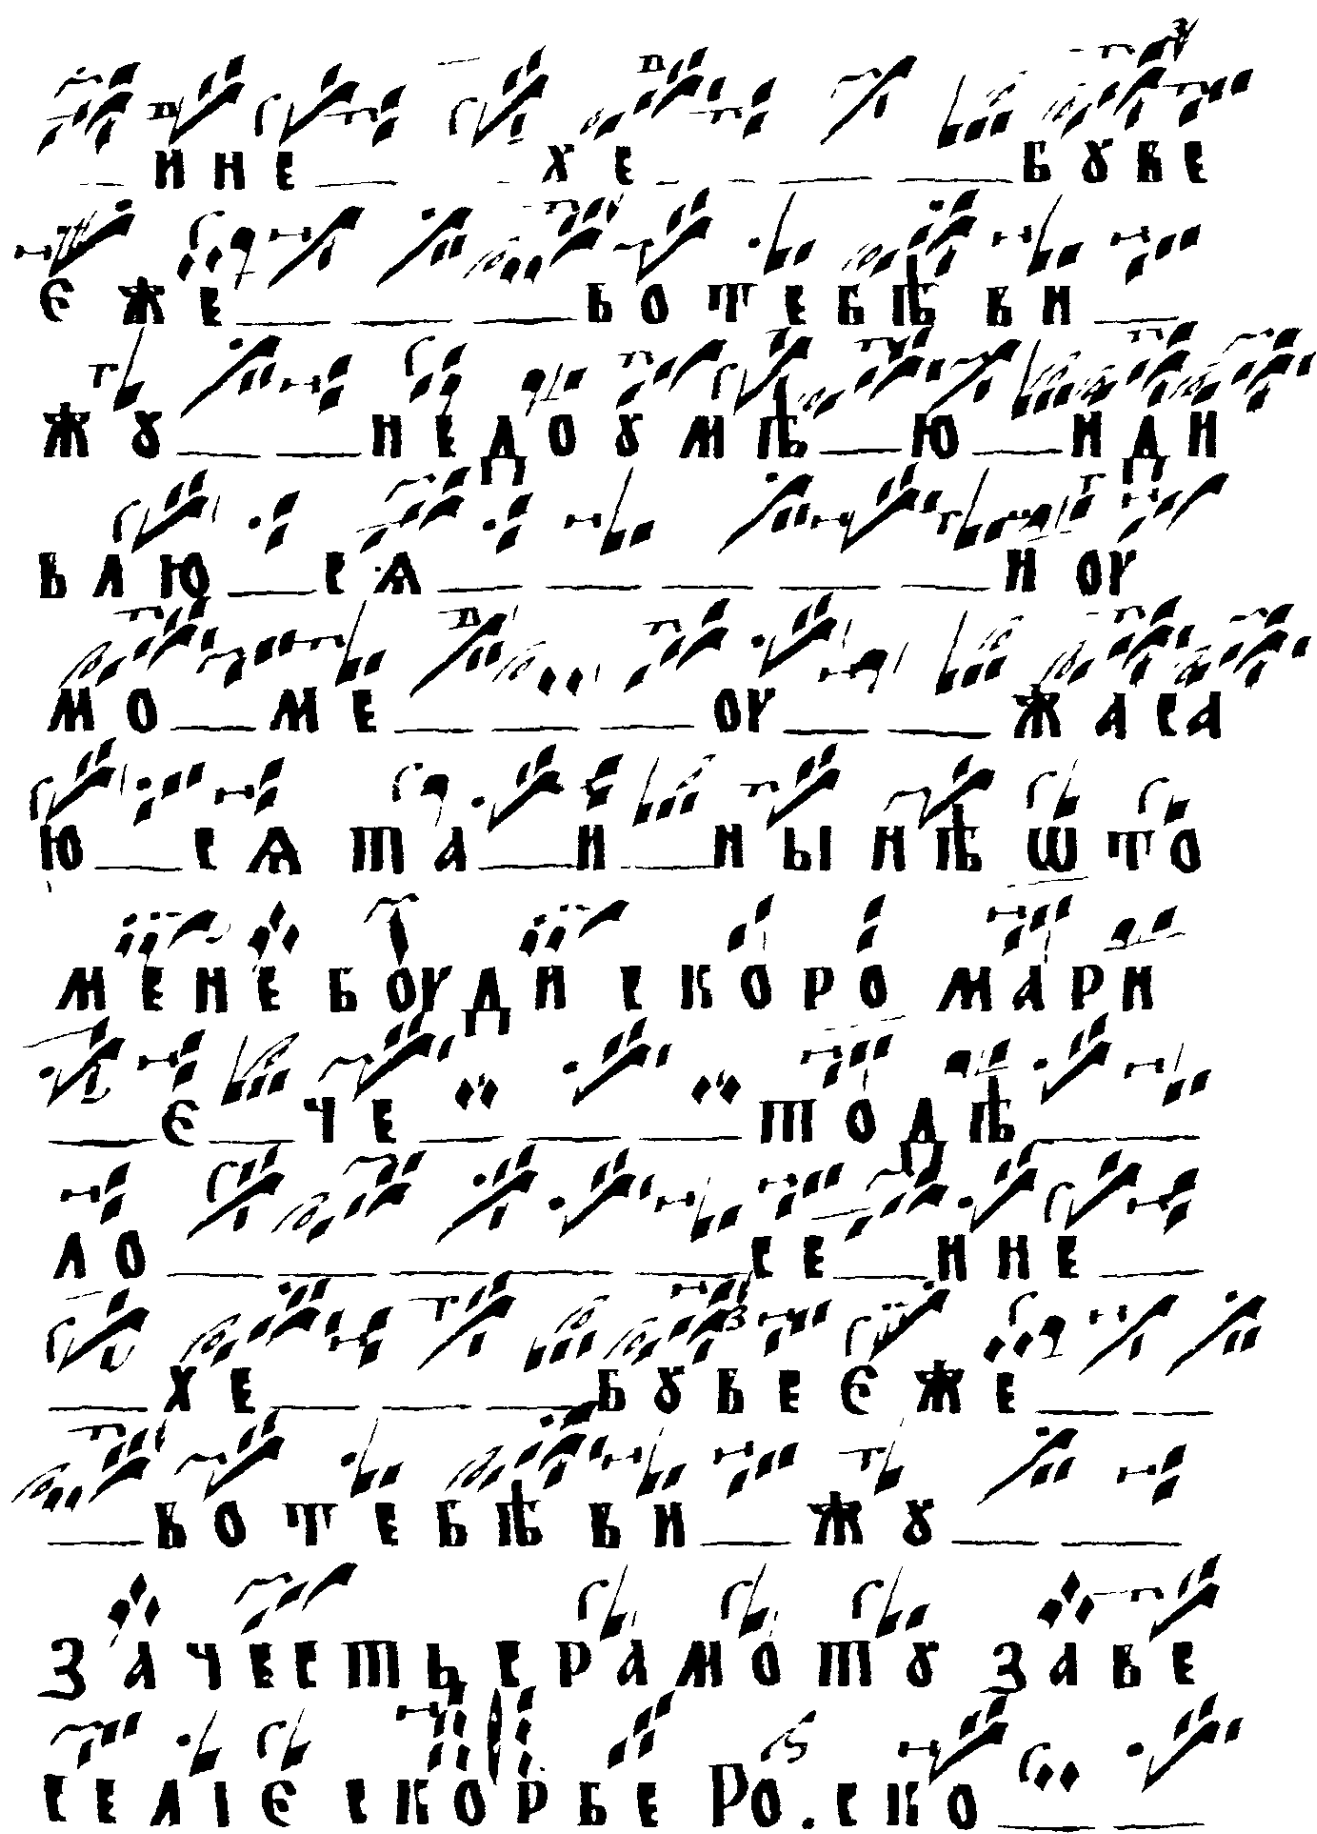 _ ине ___ хе ____ бꙋве
єже ___ вотебѣ ви _
жꙋ __ недоꙋмѣ _ ю _ иди
влю _ сѧ _____ и оу
мо _ ме ___ оу __ жаса
ю _ сѧ та _ и _ нынѣ што
мене боуди скоро мари
_ є _ че ___ тодѣ __
ло _____ се _ ине _
_ хе ___ бꙋвеєже __
_ вотебѣ ви _ жꙋ __
зачестьсрамотꙋ заве
селіє скорбе Ро. ско __